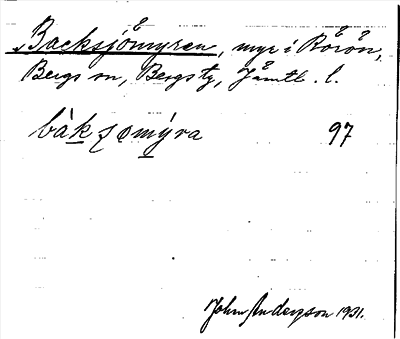 Backsjömyren, myr i Rörön,
Bergs sn, Bergs tg, Jämtl. l.
bàk ʃømýra 97
John Anderzson 1931.